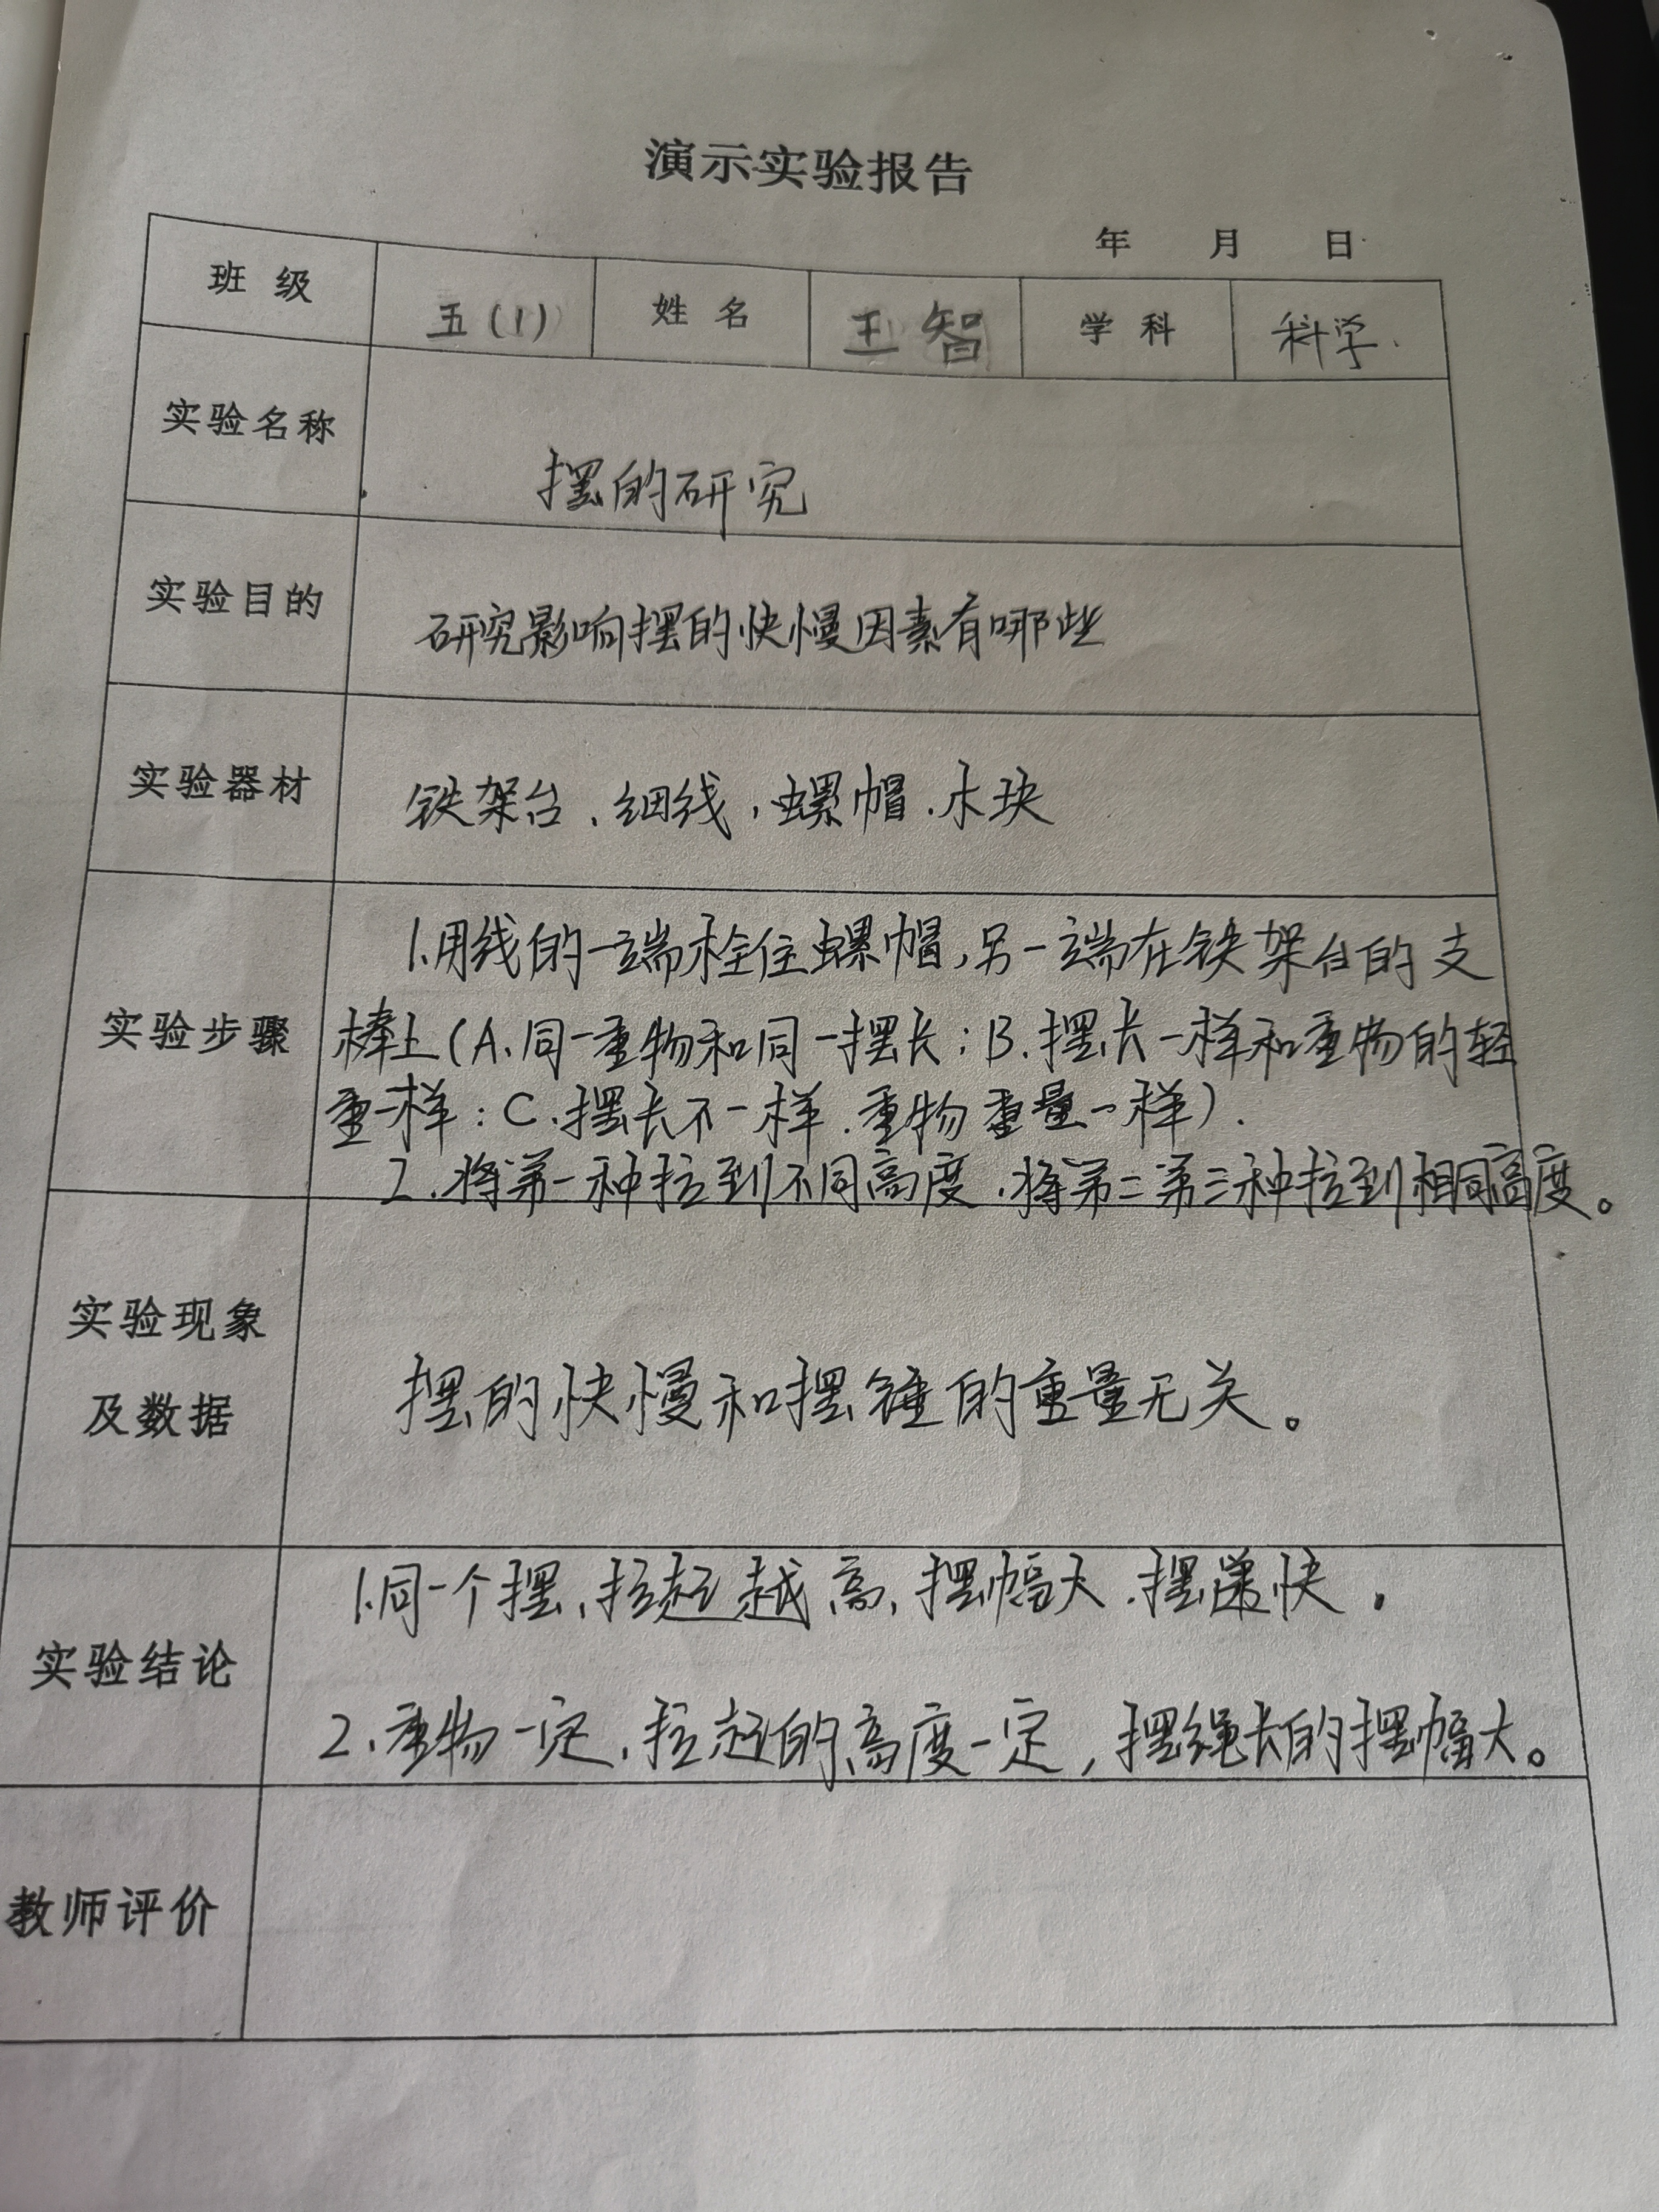 演示实验报告
年 月 日
班级 五(1) 姓名 王智 学科 科学.
实验名称 摆的研究
实验目的 研究影响摆的快慢因素有哪些
实验器材 铁架台、细线,螺帽.木块
1.用线的一端栓住螺帽,另一端在铁架台的支
实验步骤 棒上(A.同一重物和同一摆长;B.摆长一样和重物的轻
重一样:C.摆长不一样.重物重量一样).
2.将第一种拉到不同高度.将第二第三种拉到相同高度。
实验现象
及数据 摆的快慢和摆锤的重量无关。
1.同一个摆,拉起越高,摆幅大.摆速快.
实验结论
2、重物一定,拉起的高度一定,摆绳长的摆幅大。
教师评价